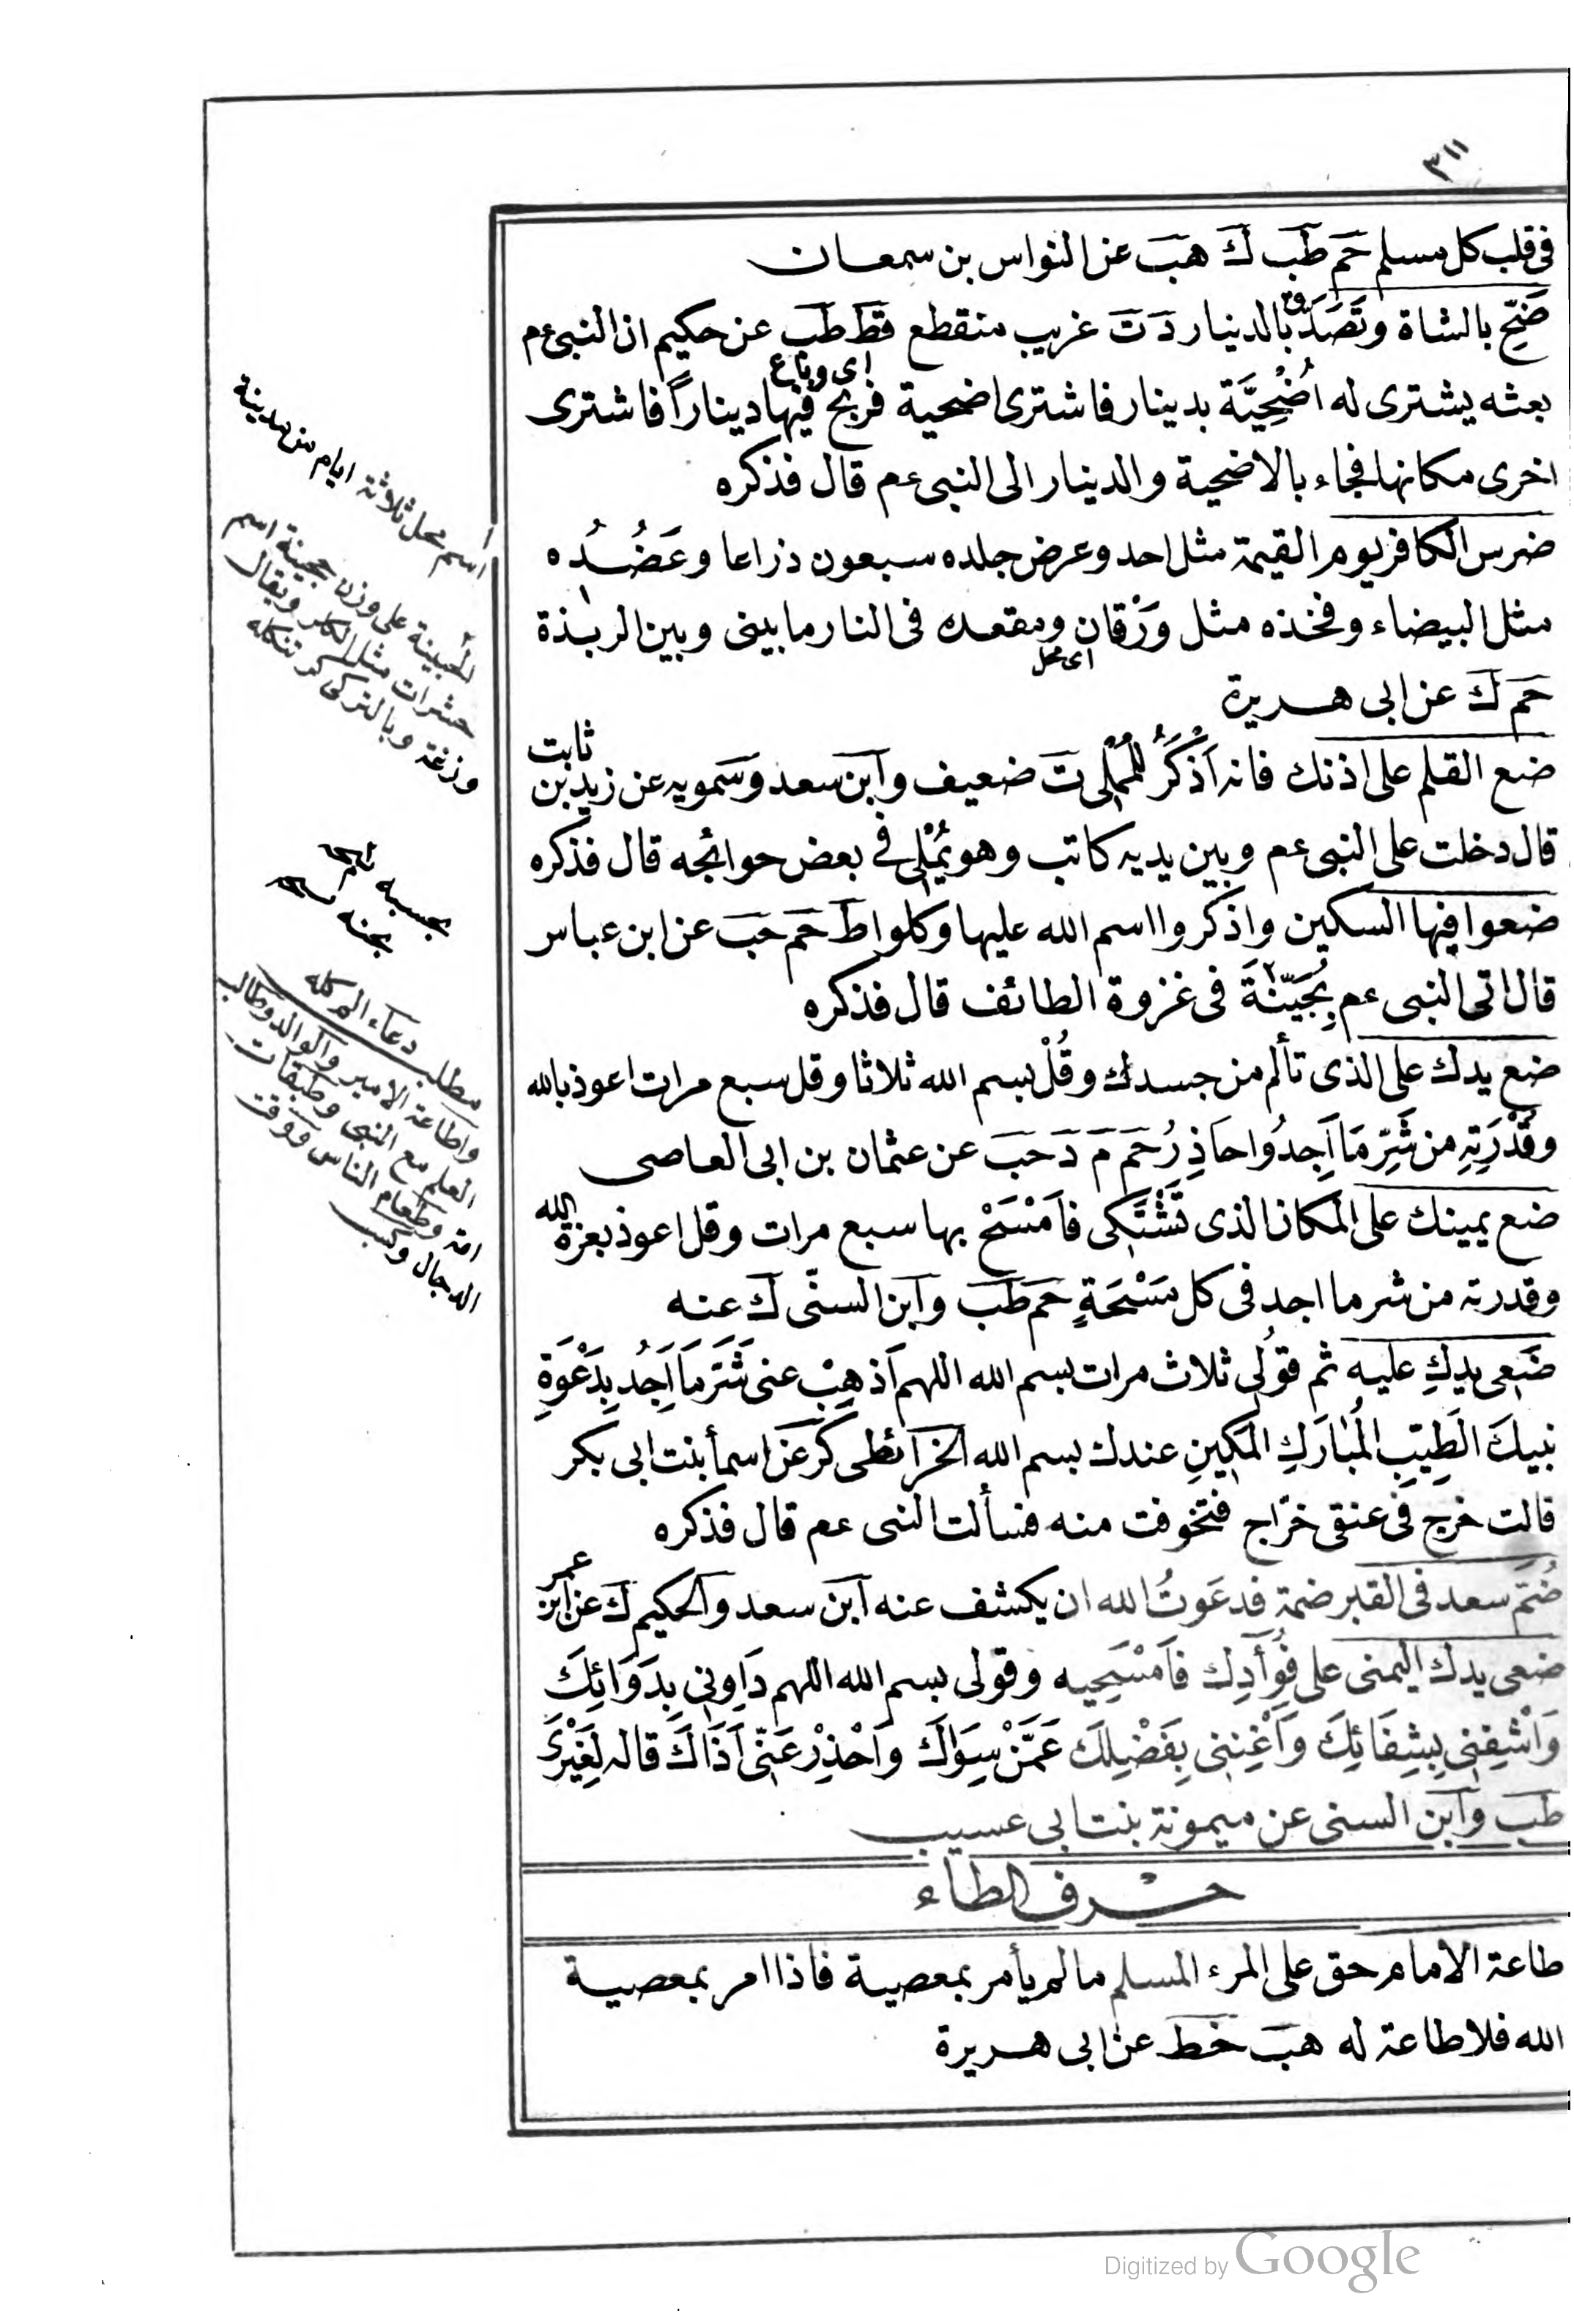 ٣١١
فى قلب كل مسلم حَم طَب كَ هبَ عن النواس بن سمعان
ضَحِّ بالشاة وتَصَدَّقْ بالدينار دَ تَ غريب منقطع قط طَب عن حكيم ان النبى عم
اى وباع
بعثه يشترى له اُضْحِيَّة بدينار فاشترى اضحية فربح فيها ديناراً فاشترى
اخرى مكانها فجاء بالاضحية والدينار الى النبى عم قال فذكره
ضرس الكافر يوم القيمة مثل احد وعرض جلده سبعون ذراعا وعَضُدُه
مثل البيضاء وفخذه مثل وَرْقان ومقعده فى النار ما بينى وبين الربذة
اى محل
حَم كَ عن ابى هريرة
ضع القلم على اذنك فانه اَذْكَرُ لِلْمُمْلِى تَ ضعيف وآبن سعد وسَمويه عن زيد بن ثابت
قال دخلت على النبى عم وبين يديه كاتب وهو يُمْلِى فى بعض حوائجه قال فذكره
ضعوا فيها السكين واذكروا اسم الله عليها وكلوا طَ حَم حَبَ عن ابن عباس
قال اتى النبى عم بِجُبَيْنَةَ فى غزوة الطائف قال فذكره
ضع يدك على الذى تألم من جسدك وقُلْ بسم الله ثلاثا وقل سبع مرات اعوذ بالله
وقُدْرَتِهِ من شَرِّ مَا اَجِدُ واحَاذِرُ حَم مَ دَ حَبَ عن عثمان بن ابى العاصى
ضع يمينك على المكان الذى تَشْتَكِى فاَمْسَحْ بها سبع مرات وقل اعوذ بعزة الله
وقدرته من شر ما اجد فى كل مَسْحَةٍ حَم طَبَ وآبن السنّى كَ عنه
ضَعِى يدكِ عليه ثم قوُلِى ثلاث مرات بسم الله اللهم اَذهِبْ عنى شَرَّ مَا اَجِدُ بِدَعْوَةِ
نبيكَ الَطيِّبِ المُبارَكِ المَكِينِ عندك بسم الله آلخرائطى كرَ عن اسمأ بنت ابى بكر
قالت خرج فى عنقى خرّاج فتخوفت منه فسألت النبى عم قال فذكره
ضُمّ سعد فى القبر ضمة فدعَوتُ الله ان يكشف عنه آبن سعد وآلحكيم كَ عن ابن عمر
ضعى يدك اليمنى على فُوأَدِك فاَمْسَحِيه وقولى بسم الله اللهم دَاوِنِى بِدَوَائِكَ
وَاَشْفِنِى بِشِفَائِكَ وَاَغْنِنِى بِفَضْلِكَ عَمَّنْ سِوَاكَ وَاَحْذِرْ عَنِّى اَذَاكَ قاله لِغَيْرَى
طَب وآبن السنى عن ميمونة بنت ابى عسيب
حرف الطاء
طاعة الامام حق على المرء المسلم مالم يأمر بمعصية فاذا امر بمعصية
الله فلا طاعة له هبَ خَط عن ابى هريرة
اسم محل ثلاثة ايام من مدينة
على وزن جهينة اسم
حشرات مثل ويقال
وزغة وبالتركى كرتنكله
مطلب دعاء
واطاعة الامير والوالد وطالب
العلم مع النبى وطبقات
امته وطعام الناس ووقت
الدجال وكسب
Digitized by Google